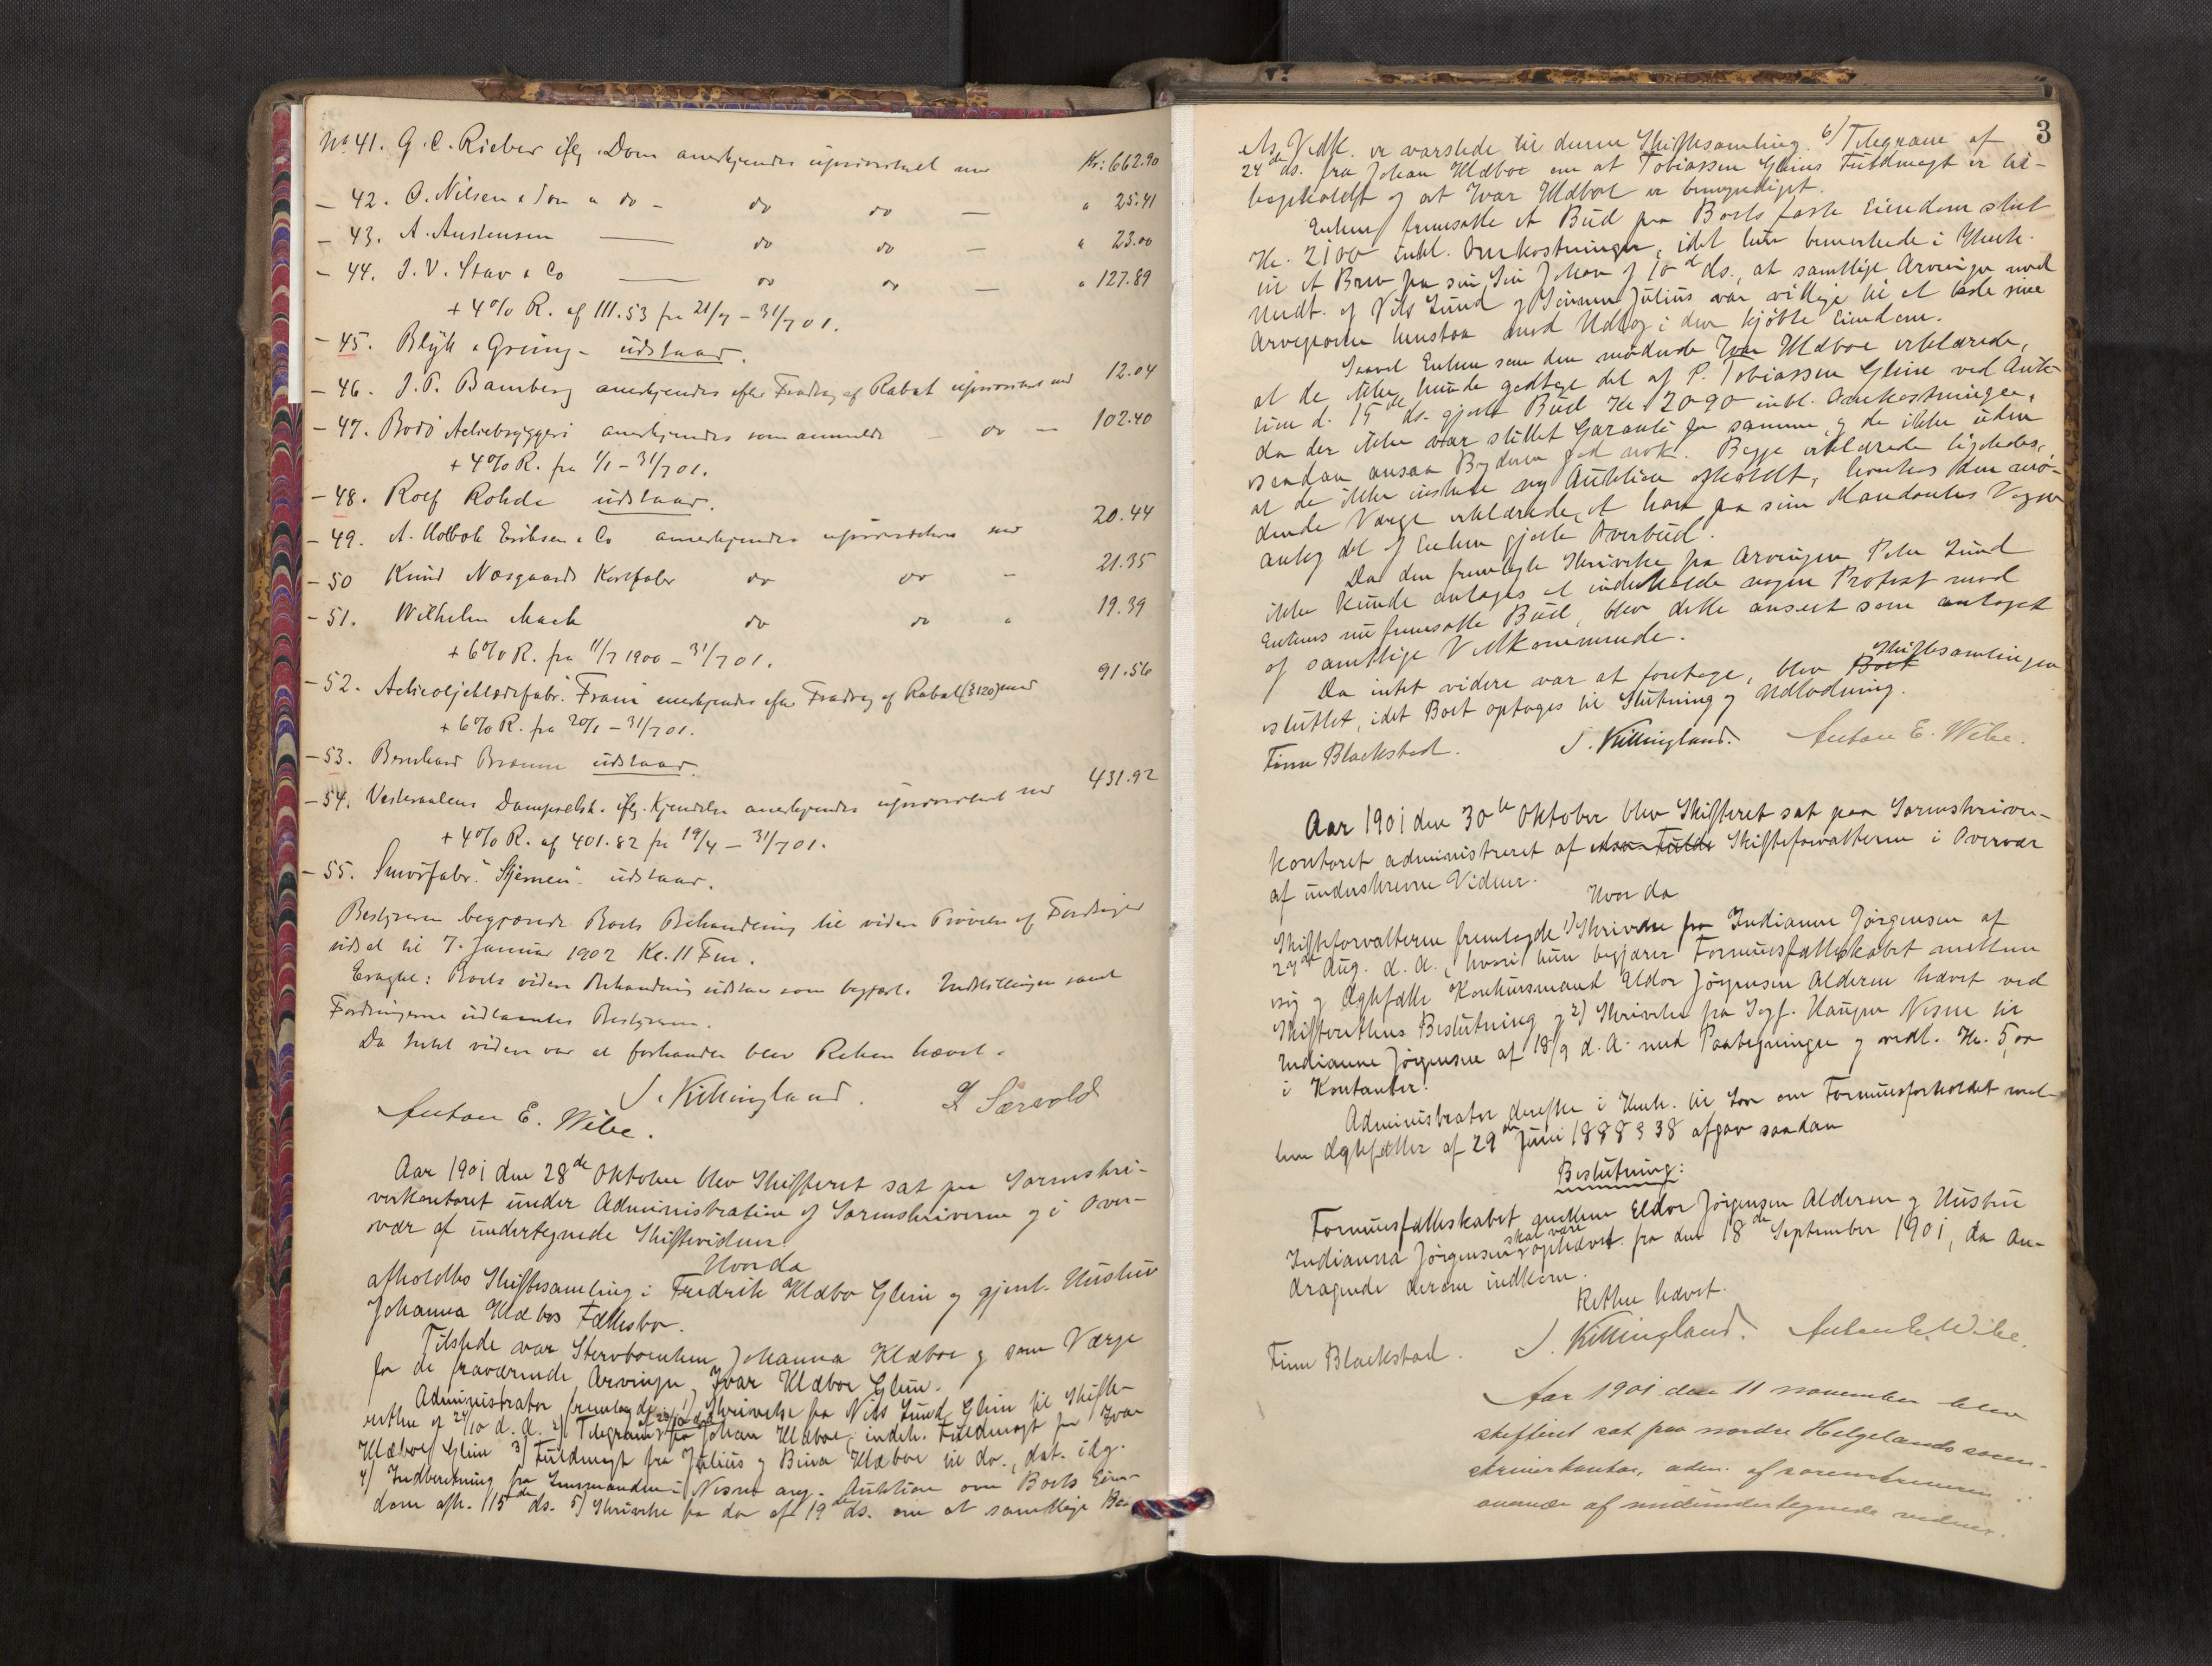 No 41. G. C. Rieber iflg. Dom anerkjendes uprioritert med Kr: 662.90
- 42. O. Nilsen & Søn " do - do do — " 25.41
- 43. A. Austensen — do do — " 23.00
- 44. J. V. Stav & Co — do do — " 127.89
+ 4% R. af 111.53 fra 21/7 - 31/7 01.
- 45. Blyh & Grung - udstaar.
- 46. J. P. Bamberg anerkjendes efter Fradrag af Rabat uprioritert med 12.04
- 47. Bodö Actiebryggeri anerkjendes som anmeldt - do — 102.40
+ 4% R. fra 1/1 - 31/7 01.
- 48. Rolf Rohde udstaar.
- 49. A. Holbøk Eriksen & Co anerkjendes uprioritert med 20.44
- 50 Knud Næsgaards Kortfabr do do - 21.35
- 51. Wilhelm Mack do do " 19.39
+ 6% R. fra 11/7 1900 - 31/7 01.
- 52. Actieoljeklædefabr. "Fram" anerkjendes efter Fradrag af Rabat (3.20) med 91.56
+ 6% R. fra 20/1 - 31/7 01.
- 53. Bernhard Brænne udstaar.
- 54. Vesteraalens Dampselsk. iflg. Kjendelse anerkjendes uprioritert med 431.92
+ 4% R. af 401.82 fra 19/4 - 31/7 01.
- 55. Smörfabr. "Stjernen" udstaar.
Bestyreren begjærede Boets Behandling til videre Prövelse af Fordringer
udsat til 7. Januar 1902 Kl. 11 Fm.
Eragtet: Boets videre Behandling udstaar som begjært. Indstillingen samt
Fordringerne udlaantes Bestyreren.
Da Intet videre var at forhandle blev Retten hævet.
J. Killingland. L Sørvold
Anton E. Wibe.
Aar 1901 den 28de Oktober blev Skifteret sat paa Sorenskri-
verkontoret under Administration af Sorenskriveren og i Over-
vær af undertegnede Skiftevidner
Hvorda
afholdtes Skiftesamling i Fredrik Klæbo Glein og gjenl. Hustru
Johanna Klæbos Fællesbo.
Tilstede var Stervboenken Johanna Klæboe og som Værge
for de fraværende Arvinger Ivar Klæboe Glein.
Administrator fremlagde 1) Skrivelse fra Nils Lund Glein til Skifte-
retten af 24/10 d. A. 2) Telegram af 23/10 d. A. fra Johan Klæboe, indeh. Fuldmagt for Ivar
Klæboe Glein 3) Fuldmagt fra Julius og Bina Klæboe til do., dat. idg.
4) Indberetning fra Lensmanden i Nesne ang. Auktion over Boets Eien-
dom afh. 15de ds. 5) Skrivelse fra do af 19de ds. om at samtlige Bo-
3
ets Vedk. er varslede til denne Skiftesamling. 6) Telegram af
24de ds. fra Johan Klæboe om at Tobiassen Gleins Fuldmagt er til-
bagekaldt og at Ivar Klæboe er bemyndiget.
Enken fremsatte et Bud paa Boets faste Eiendom stort
Kr. 2100 inkl. Omkostninger, idet hun bemerkede i Henh.
til et Brev fra sin Sön Johan af 10de ds., at samtlige Arvinger med
Undt. af Nils Lund og Sønnen Julius var villige til at lade sine
Arveparter henstaa mod Udlæg i den kjöbte Eiendom.
Saavel Enken som den mødende Ivar Klæboe erklærede,
at de ikke kunde godtage det af P. Tobiassen Glein ved Auk-
tion d. 15de ds. gjorte Bud Kr. 2090 inkl. Omkostninger,
da der ikke var stillet Garanti for samme, og de ikke uden
saadan ansaa Byderen god nok. Begge erklærede ligeledes,
at de ikke önskede ny Auktion afholdt, hvorhos den mö-
dende Værge erklærede, at han paa sine Mandanters Vegne
antog det af Enken gjorte Overbud.
Da den fremlagte Skrivelse fra Arvingen Peter Lund
ikke kunde antages at indeholde nogen Protest mod
Enkens nu fremsatte Bud, blev dette anseet som antaget
af samtlige Vedkommende.
Da intet videre var at foretage, blev Boet Skiftesamlingen
sluttet, idet Boet optages til Slutning og Udlodning.
Finn Blackstad. J. Killingland. Anton E. Wibe.
Aar 1901 den 30te Oktober blev Skifteret sat paa Sorenskriver-
kontoret administreret af Skifteforvalteren i Overvær
af underskrevne Vidner.
Hvorda
Skifteforvalteren fremlagde 1) Skrivelse fra Indianna Jörgensen af
27de Aug. d. A., hvori hun begjærer Formuesfællesskabet mellem
sig og Ægtefælle Konkursmand Eldor Jörgensen Alderen hævet ved
Skifterettens Beslutning og 2) Skrivelse fra Sagf. Haugen Nesne til
Indianne Jörgensen af 18/9 d. A. med Paategninger og vedl. Kr. 5,00
i Kontanter.
Administrator derefter i Henh. til Lov om Formuesforholdet mel-
lem Ægtefæller af 29de Juni 1888 § 38 afgav saadan
Beslutning:
Formuesfællesskabet mellem Eldor Jörgensen Alderen og Hustru
Indianna Jörgensen skal være ophævet fra den 18de September 1901, da An-
dragende derom indkom.
Retten hævet.
Finn Blackstad. J. Killingland. Anton E. Wibe.
Aar 1901 den 11 november blev
skifteret sat paa nordre Helgelands soren-
skriverkontor, adm. af sorenskriveren i
overvær af medundertegnede vidner.